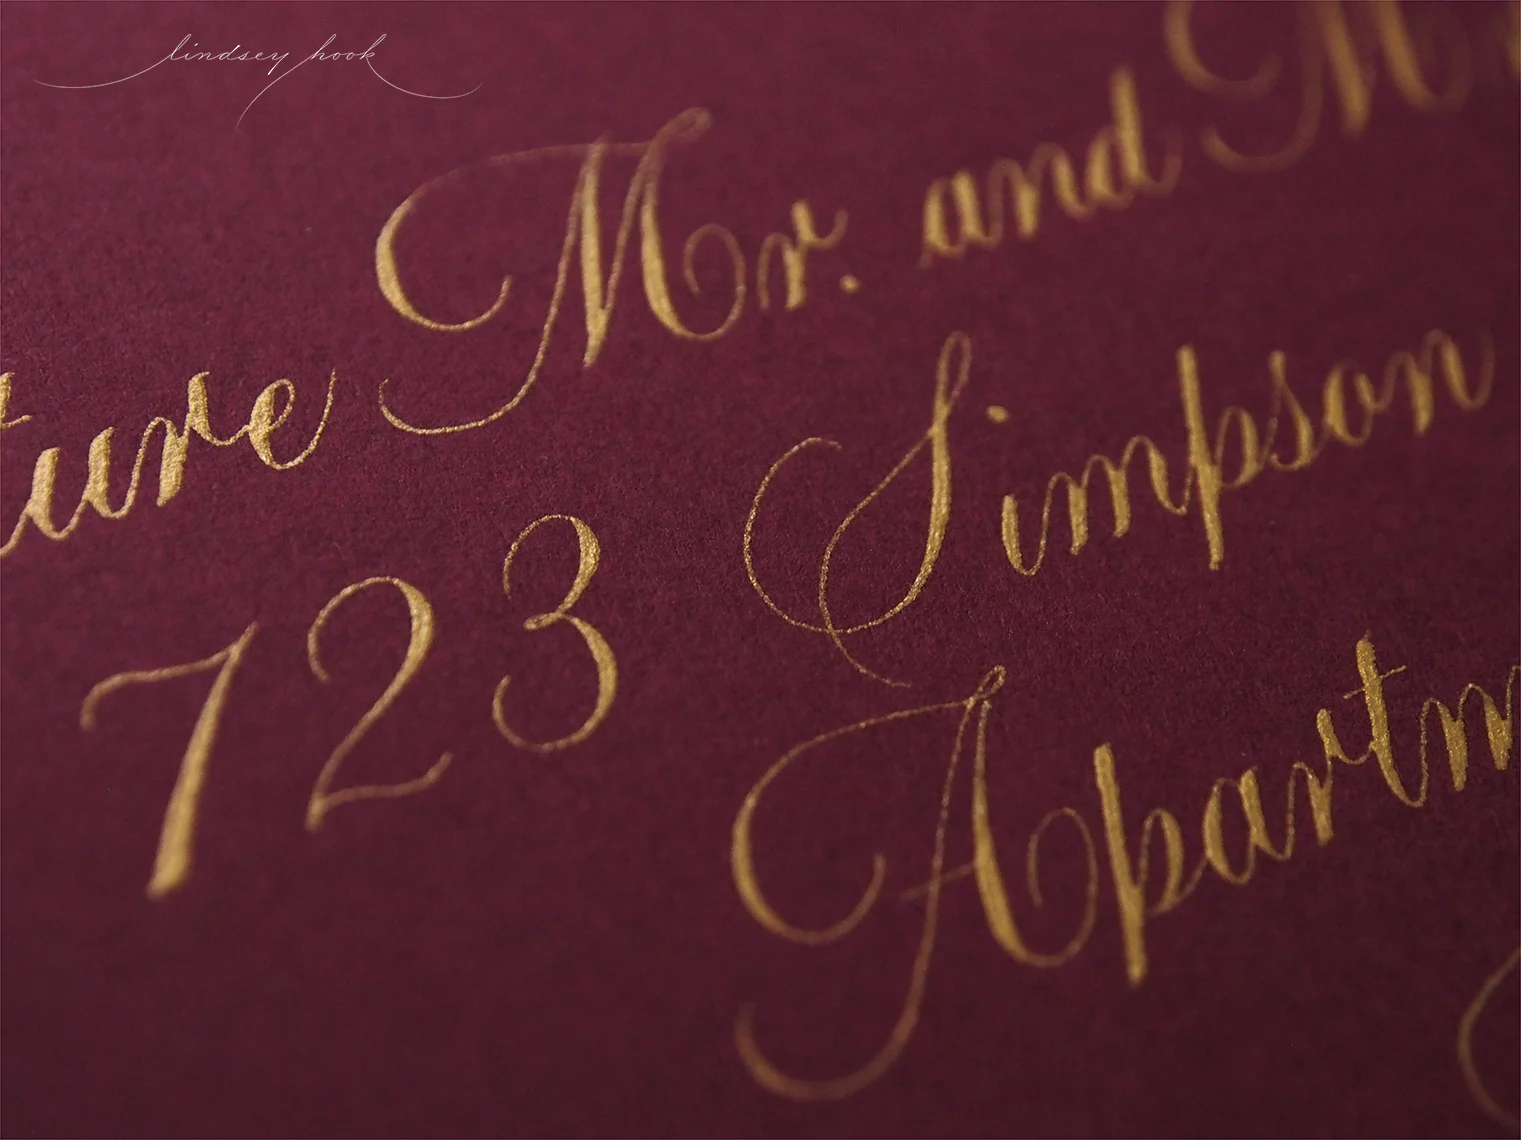 lindsey hook
ture Mr. and M
723 Simpson
Apartm